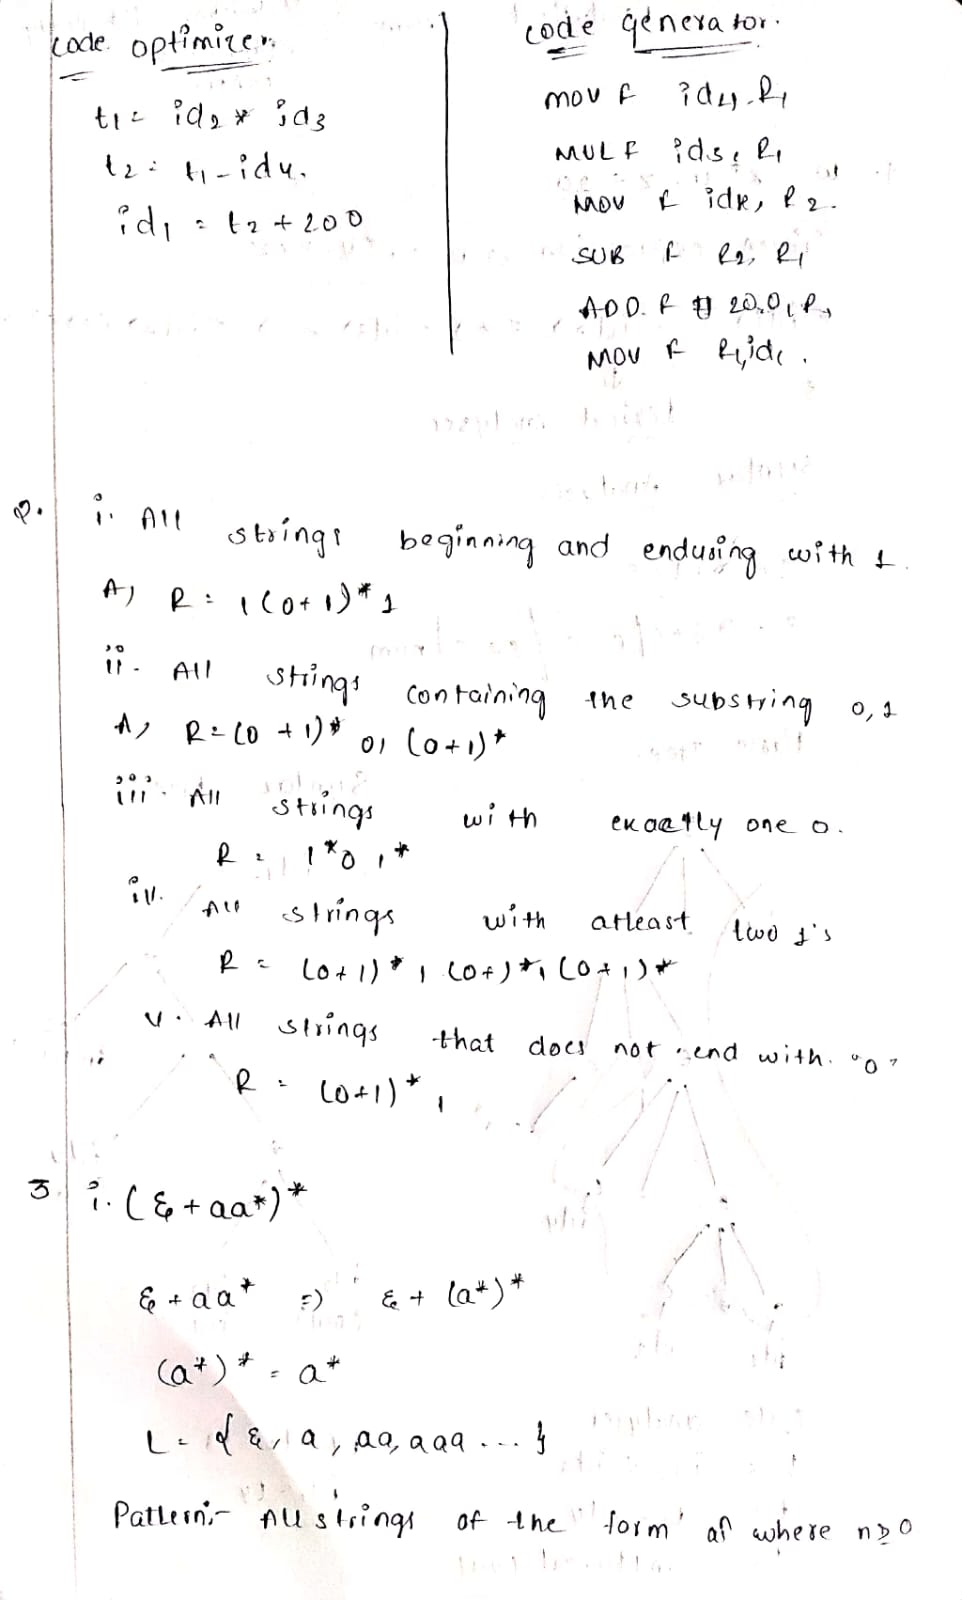 code optimizer
t1 = id2 * id3
t2 = t1 - id4.
id1 = t2 + 200
code generator.
MOV F id4, R1
MULF id5, R1
MOV F id2, R2.
SUB F R2, R1
ADD. F # 20.0, R1
MOV F R1, id1.
2. i. All strings beginning and endusing with 1.
A) R = 1(0+1)*1
ii. All strings containing the substring 0,1
A) R = (0+1)* 01 (0+1)*
iii. All strings with exactly one 0.
R = 1*01*
iv. All strings with atleast two 1's
R = (0+1)* 1 (0+)* 1 (0+1)*
v. All strings that does not end with "0"
R = (0+1)* 1
3. i. (ε + aa*)*
ε + aa* => ε + (a*)*
(a*)* = a*
L = { ε, a, aa, aaa ... }
Pattern:- All strings of the form aⁿ where n≥0